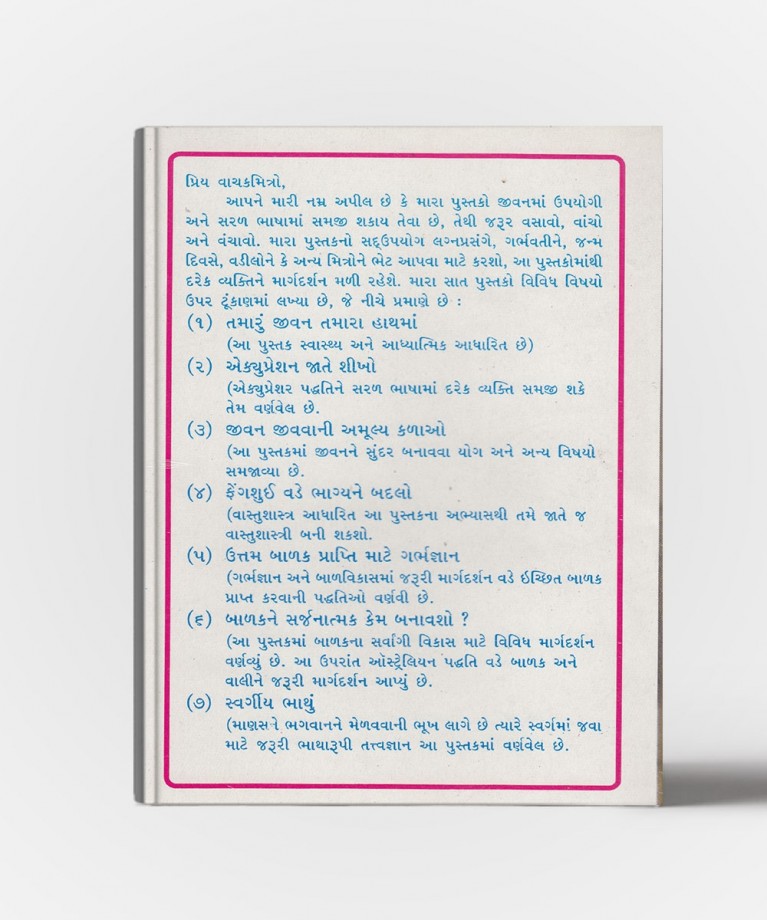 પ્રિય વાચકમિત્રો,
આપને મારી નમ્ર અપીલ છે કે મારા પુસ્તકો જીવનમાં ઉપયોગી
અને સરળ ભાષામાં સમજી શકાય તેવા છે, તેથી જરૂર વસાવો, વાંચો
અને વંચાવો. મારા પુસ્તકનો સદ્ઉપયોગ લગ્નપ્રસંગે, ગર્ભવતીને, જન્મ
દિવસે, વડીલોને કે અન્ય મિત્રોને ભેટ આપવા માટે કરશો, આ પુસ્તકોમાંથી
દરેક વ્યક્તિને માર્ગદર્શન મળી રહેશે. મારા સાત પુસ્તકો વિવિધ વિષયો
ઉપર ટૂંકાણમાં લખ્યા છે, જે નીચે પ્રમાણે છે :
(૧) તમારું જીવન તમારા હાથમાં
(આ પુસ્તક સ્વાસ્થ્ય અને આધ્યાત્મિક આધારિત છે)
(૨) એક્યુપ્રેશન જાતે શીખો
(એક્યુપ્રેશર પદ્ધતિને સરળ ભાષામાં દરેક વ્યક્તિ સમજી શકે
તેમ વર્ણવેલ છે.
(૩) જીવન જીવવાની અમૂલ્ય કળાઓ
(આ પુસ્તકમાં જીવનને સુંદર બનાવવા યોગ અને અન્ય વિષયો
સમજાવ્યા છે.
(૪) ફેંગશુઈ વડે ભાગ્યને બદલો
(વાસ્તુશાસ્ત્ર આધારિત આ પુસ્તકના અભ્યાસથી તમે જાતે જ
વાસ્તુશાસ્ત્રી બની શકશો.
(૫) ઉત્તમ બાળક પ્રાપ્તિ માટે ગર્ભજ્ઞાન
(ગર્ભજ્ઞાન અને બાળવિકાસમાં જરૂરી માર્ગદર્શન વડે ઈચ્છિત બાળક
પ્રાપ્ત કરવાની પદ્ધતિઓ વર્ણવી છે.
(૬) બાળકને સર્જનાત્મક કેમ બનાવશો ?
(આ પુસ્તકમાં બાળકના સર્વાંગી વિકાસ માટે વિવિધ માર્ગદર્શન
વર્ણવ્યું છે. આ ઉપરાંત ઑસ્ટ્રેલિયન પદ્ધતિ વડે બાળક અને
વાલીને જરૂરી માર્ગદર્શન આપ્યું છે.
(૭) સ્વર્ગીય ભાથું
(માણસને ભગવાનને મેળવવાની ભૂખ લાગે છે ત્યારે સ્વર્ગમાં જવા
માટે જરૂરી ભાથારૂપી તત્ત્વજ્ઞાન આ પુસ્તકમાં વર્ણવેલ છે.